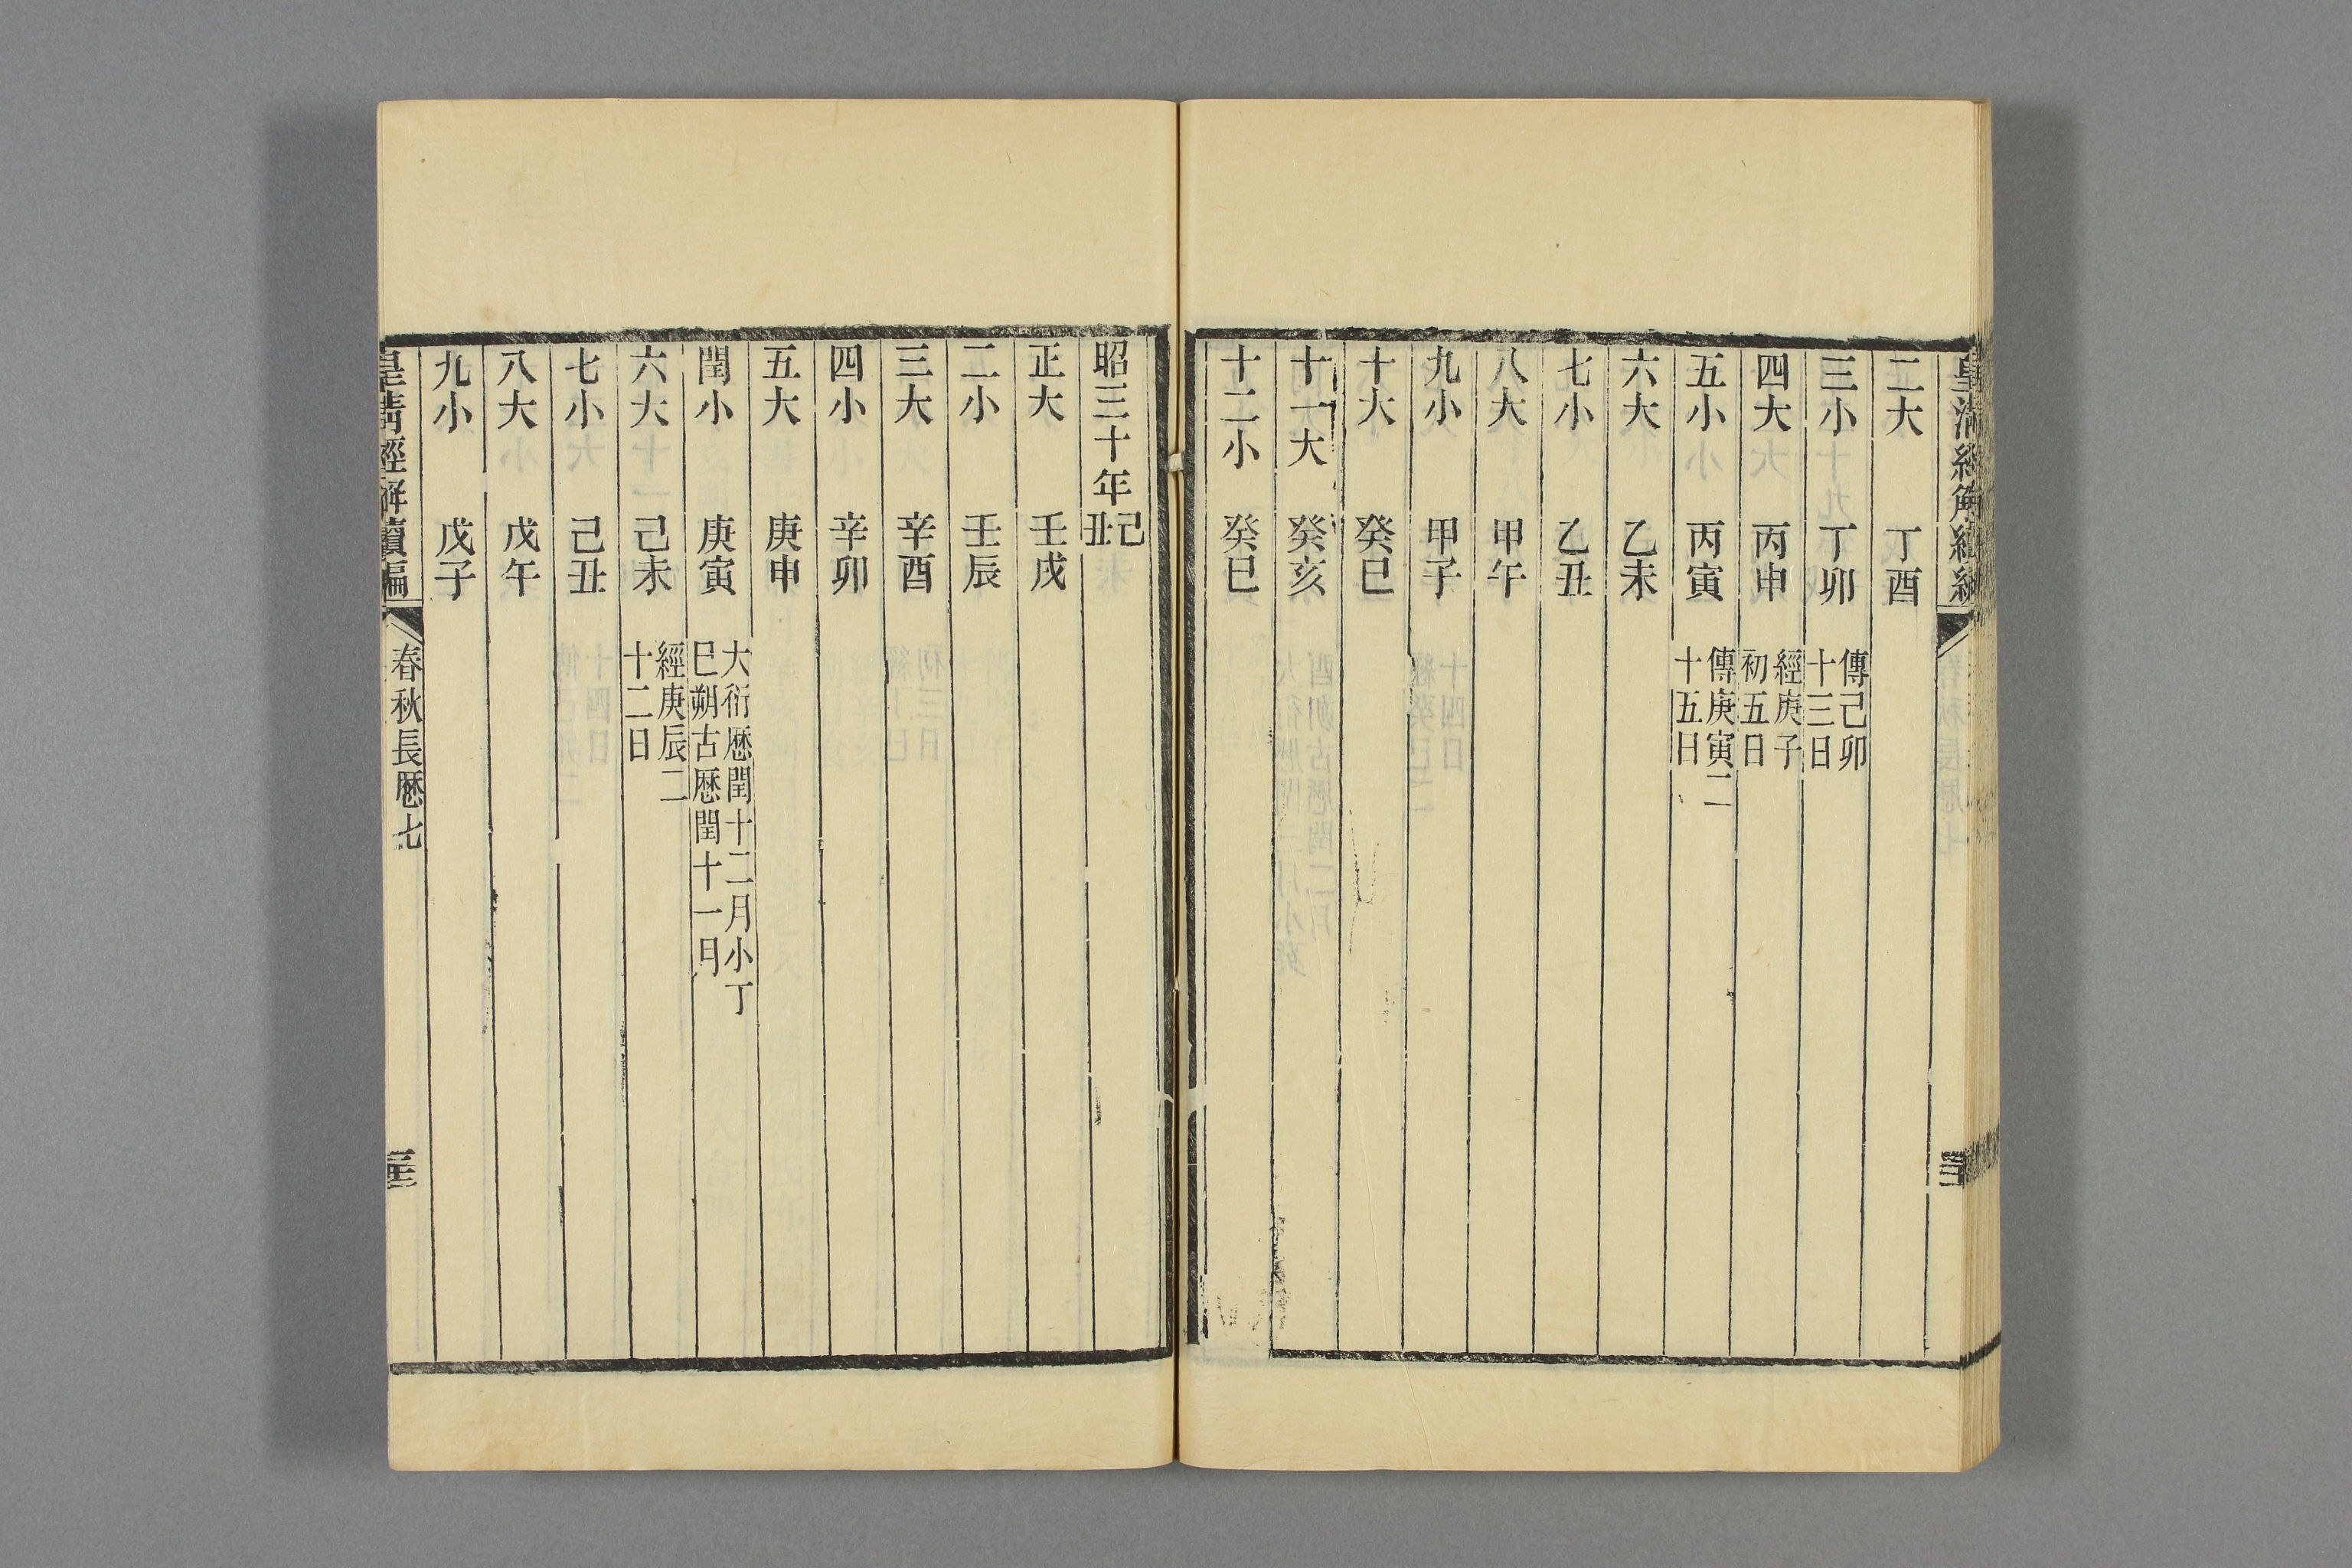 皇清經解續編
二大　丁酉
三小　丁卯　傳己卯
十三日
四大　丙申　經庚子
初五日
五小　丙寅　傳庚寅二
十五日
六大　乙未
七小　乙丑
八大　甲午
九小　甲子
十大　癸巳
十一大　癸亥
十二小　癸巳
昭三十年己
丑
正大　壬戌
二小　壬辰
三大　辛酉
四小　辛卯
五大　庚申
閏小　庚寅　大衍厯閏十二月小丁
巳朔古厯閏十一日
六大　己未　經庚辰二
十二日
七小　己丑
八大　戊午
九小　戊子
皇清經解續編　春秋長厯七